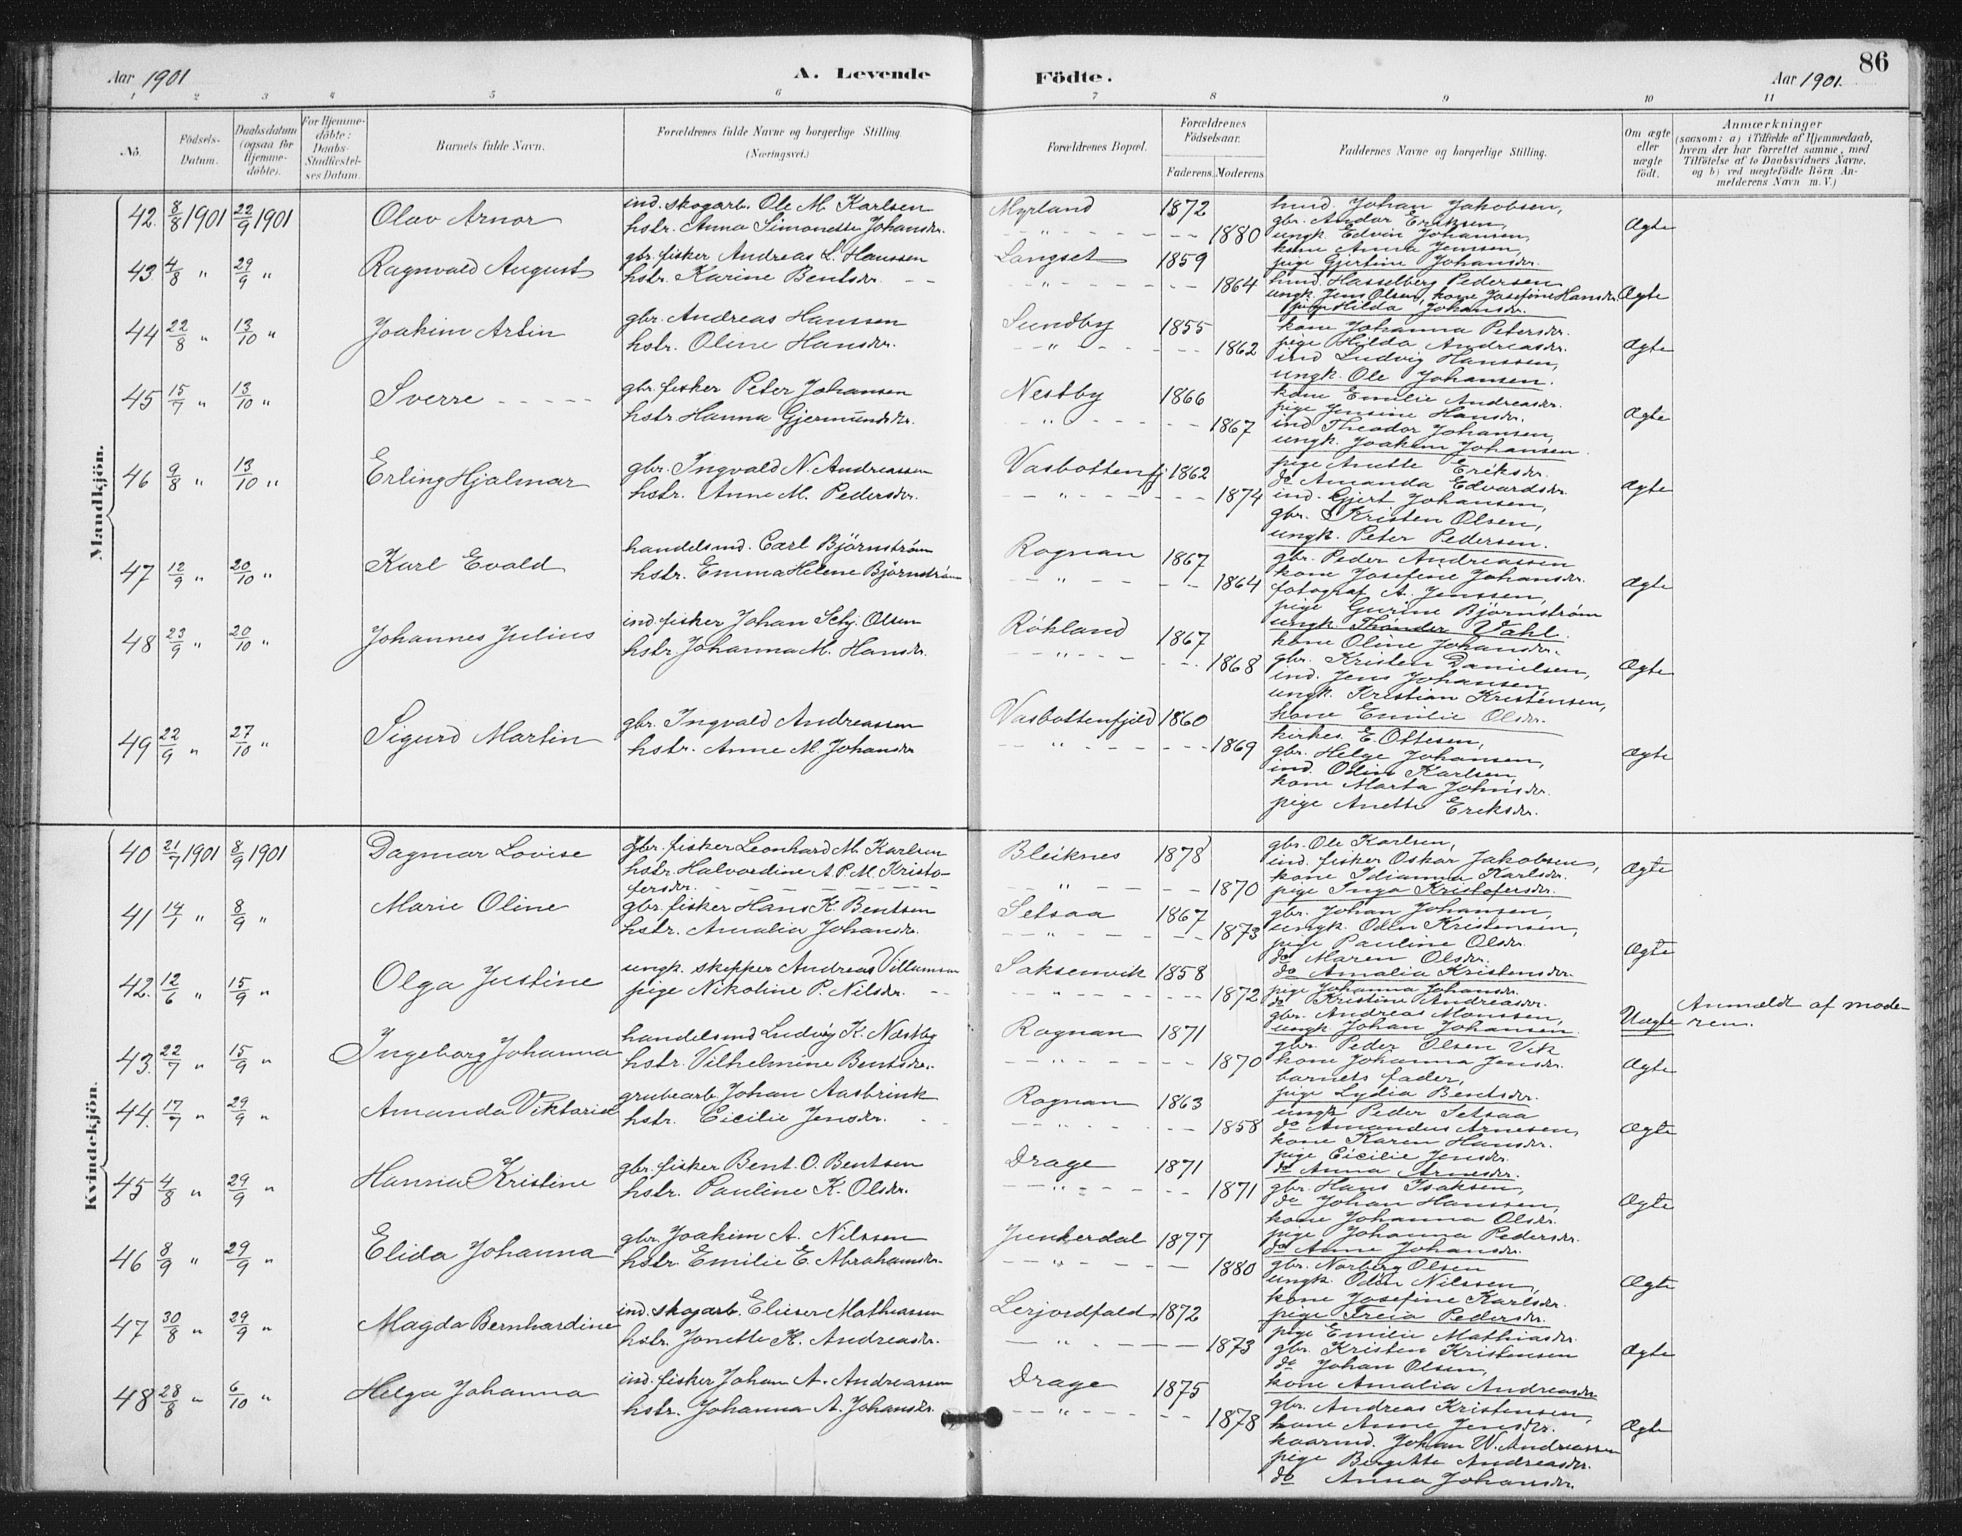 86
Aar 1901 A. Levende Födte. Aar 1901.
1 2 3 4 5 6 7 8 9 10 11
No. Födsels-Datum. Daabsdatum (ogsaa för Hjemme-döbte). For Hjemme-döbte: Daabs-Stadfæstel-ses Datum. Barnets fulde Navn. Forældrenes fulde Navne og borgerlige Stilling. (Næringsvei.) Forældrenes Bopæl. Forældrenes Födselsaar. Faderens. Moderens. Faddernes Navne og borgerlige Stilling. Om ægte eller uægte födt. Anmærkninger (saasom: a) i Tilfælde af Hjemmedaab, hvem der har forrettet samme, med Tilföielse af to Daabsvidners Navne. og b) ved uægtefödte Börn An-melderens Navn m. V.)
Mandkjön.
42. 8/8 1901 22/9 1901 Olav Arnor ind. skogarb. Ole M. Karlsen Myrland 1872 hmd. Johan Jakobsen,
gbr. Andor Eriksen,
hstr. Anna Simonette Johansdr. 1880 ungk. Edvin Johansen, Ægte
kone Anna Jensen,
pige Gjertine Johansdr.
43 4/8 " 29/9 " Ragnvald August gbr. fisker Andreas L. Hanssen Langset 1859
hstr. Karine Bentsdr. 1864 hmd. Hasselberg Pedersen
ungk. Jens Olsen, kone Josefine Hansdr. Ægte
pige Hilda Johansdr.
44 22/8 " 13/10 " Joakim Artin gbr. Andreas Hanssen Sundby 1855 kone Johanna Petersdr.
hstr. Oline Hansdr. 1862 pige Hilda Andreasdr. Ægte
ind. Ludvig Hanssen,
ungk. Ole Johansen.
45 15/7 " 13/10 " Sverre gbr. fisker Peter Johansen Nestby 1866 kone Emilie Andreasdr.
pige Jensine Hansdr. Ægte
hstr. Hanna Gjermundsdr. 1867 ind. Theodor Johansen,
ungk. Joakim Johansen
46 9/8 " 13/10 " Erling Hjalmar gbr. Ingvald N. Andreassen Vasbottenfj 1862 pige Anette Eriksdr.
do Amanda Edvardsdr. Ægte
hstr. Anne M. Pedersdr. 1874 ind. Gjert Johansen,
gbr. Kristen Olsen,
ungk. Peter Pedersen.
47 12/9 " 20/10 " Karl Evald handelsmd. Carl Björnström Rognan 1867 gbr. Peder Andreassen
kone Josefine Johansdr.
hstr. Emma Helene Björnström 1864 fotograf A. Jenssen, Ægte
pige Gurine Björnstrøm
ungk. Thönder Vahl.
48 23/9 " 20/10 " Johannes Julius ind. fisker Johan Schj. Olsen Rökland 1867 kone Oline Johansdr.
hstr. Johanna M. Hansdr. 1868 gbr. Kristen Danielsen, Ægte
ind. Jens Johansen,
ungk. Kristian Kristensen,
kone Emilie Olsdr.
49 22/9 " 27/10 " Sigurd Martin gbr. Ingvald Andreassen Vasbottenfjeld 1860
hstr. Anne M. Johansdr 1869 kirkes. E. Ottesen,
gbr. Helge Johansen, Ægte
ind. Odin Karlsen,
kone Marta Johnsdr.
pige Anette Eriksdr.
Kvindekjön.
40 21/7 1901 8/9 1901 Dagmar Lovise gbr. fisker Leonhard M. Karlsen Bleiknes 1878 gbr. Ole Karlsen,
ind. fisker Oskar Jakobsen, Ægte
hstr. Halvardine A. P. M. Kristo- 1870 kone Idianna Karlsdr.
fersdr. pige Inga Kristofersdr.
41 14/7 " 8/9 " Marie Oline gbr. fisker Hans K. Bentsen Setsaa 1867 gbr. Johan Johansen,
hstr. Amalia Johansdr. 1873 ungk. Odin Kristensen,
pige Pauline Olsdr. Ægte
do Maren Olsdr.
do Amalia Kristensdr.
42. 12/6 " 15/9 " Olga Justine ungk. skipper Andreas Villumsen Saksenvik 1858
pige Nikoline P. Nilsdr. 1872 pige Johanna Johansdr.
do Kristine Andreasdr.
gbr. Andreas Monssen, Uægte Anmeldt af mode-
ungk. Johan Johansen ren.
43. 22/7 " 15/9 " Ingeborg Johanna handelsmd Ludvig K. Næstby Rognan 1871 gbr. Peder Olsen Vik
hstr. Vilhelmine Bentsdr. 1870 kone Johanna Jensdr. Ægte
barnets fader,
pige Lydia Bentsdr.
44. 17/7 " 29/9 " Amanda Viktoria grubearb. Johan Aasbrink Rognan 1863 ungk Peder Setsaa
hstr. Cicilie Jensdr. 1858 do Amandus Arnesen, Ægte
kone Karen Hansdr.
pige Cicilie Jensdr.
do Anna Arnesdr.
45 4/8 " 29/9 " Hanna Kristine gbr. fisker Bent. O. Bentsen Drage 1871
hstr. Pauline K. Olsdr. 1871 gbr. Hans Isaksen,
do Johan Hanssen, Ægte
kone Johanna Olsdr.
pige Johanna Pedersdr.
do Anne Johansdr.
46 8/9 " 29/9 " Elida Johanna gbr. Joakim A. Nilssen Junkerdal 1877
hstr. Emilie E. Abrahamsdr. 1880 gbr. Norberg Olsen
ungk. Odin Nilssen, Ægte
kone Josefine Karlsdr.
pige Freia Pedersdr.
47 30/8 " 29/9 " Magda Bernhardine ind. skogarb. Elieser Mathiassen Lerjordfald 1872 pige Emilie Mathiasdr.
hstr. Jonette K. Andreasdr. 1873 gbr. Kristen Kristensen Ægte
do Johan Olsen,
kone Amalia Andreasdr
48 28/8 " 6/10 " Helga Johanna ind. fisker Johan A. Andreassen Drage 1875 gbr. Andreas Kristensen,
hstr. Johanna A. Johansdr. 1878 kone Anne Jensdr. Ægte
kaarmd. Johan W. Andreassen
pige Bergitte Andreasdr.
do Anna Johansdr.